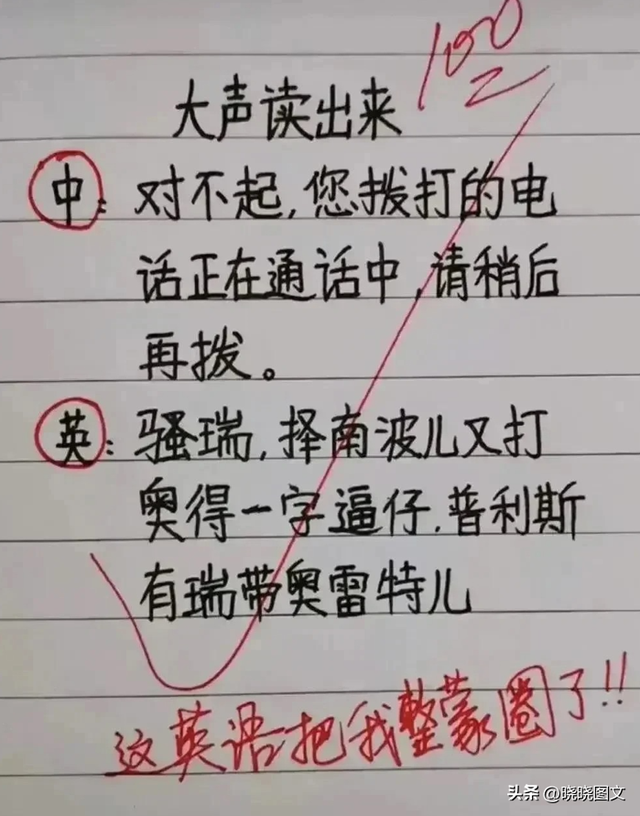 100
大声读出来
中：对不起,您拨打的电
话正在通话中,请稍后
再拨。
英：骚瑞,择南波儿又打
奥得一字逼仔.普利斯
有瑞带奥雷特儿
这英语把我整蒙圈了!!
头条 @晓晓图文